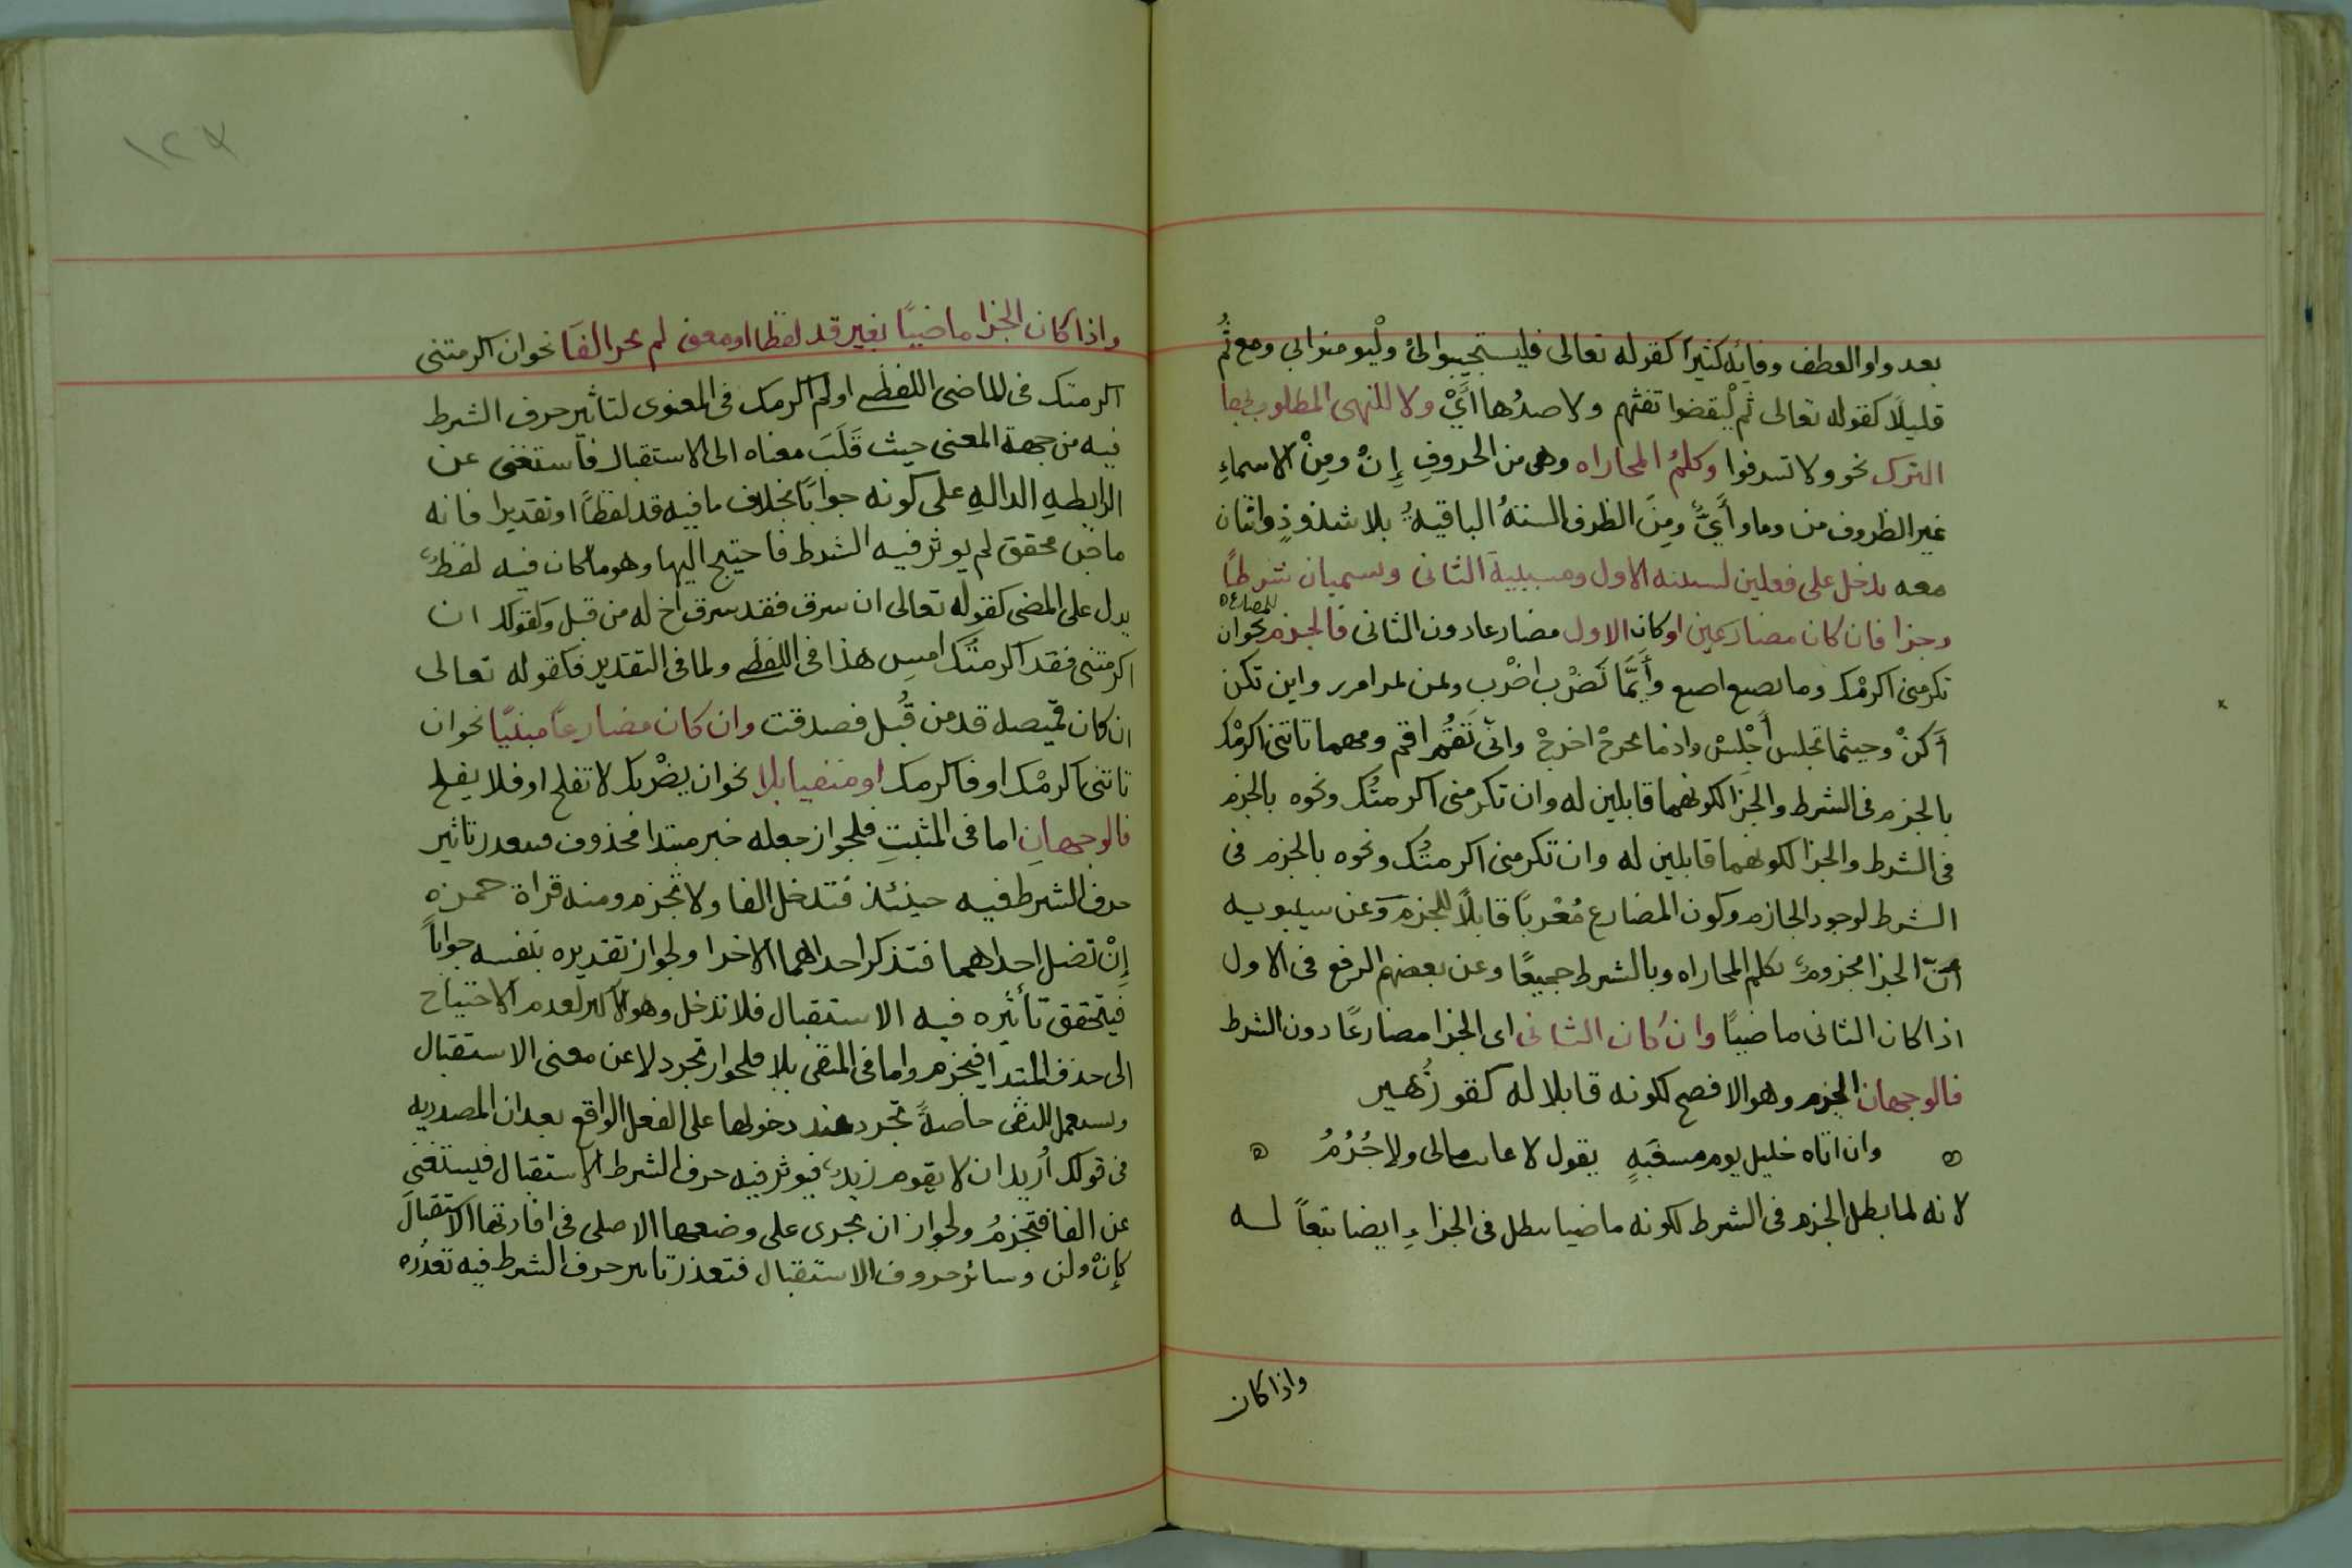 بعد واو العطف وفايه كثيرا كقوله تعالى فليستجيبوا لى وليومنوا بى ومع ثُم
قليلاً كقوله تعالى ثم ليقضوا تفثهم ولا صدُها أَيْ ولا للنهى المطلوب بها
الترك نحو ولا تسرفوا وكلمُ المجاراه وهى من الحروفِ إِنْ ومِنْ الاسماءِ
غير الظروف من وما وأَيٌّ ومِنَ الظرف الستهُ الباقيةُ بلا شذوذٍ واثمان
معه يدخل على فعلين لسببه الاول ومسببية الثانى ويسميان شرطًا
وجزا فان كان مضارعين او كان الاول مضارعا دون الثانى فالجزم نحو ان
للمضارعه
تكرمنى اكرمْك وما تصنع اصنع وأَيَّما تَضْرب اضْرب وبمن تمر امرر واين تكن
أَكنْ وحيثما تجلس أَجْلسْ واذما تخرجْ اخرجْ وانّى تَقُم اقم ومهما تاتنى اكرمْك
بالجزم فى الشرط والجَزا لكونهما قابلين له وان تكرمنى اكرمتُك ونحوه بالجزم
فى الشرط والجزا لكونهما قابلين له وان تكرمنى اكرمتُك ونحوه بالجزم فى
الشرط لوجود الجازم وكون المضارع مُعْربًا قابلاً للجزم وعن سيبويه
أنّ الجزا مجزومٌ بكلم المجاراه وبالشرط جميعًا وعن بعضهم الرفع فى الاول
اذا كان الثانى ماضيًا وان كان الثانى اى الجزا مضارعًا دون الشرط
فالوجهان الجزم وهو الافصح لكونه قابلا له كقو زُهير
وان اتاه خليل يوم مسغَبهٍ يقول لا غايب مالى ولا حُرُمُ
لانه لما بطل الجزم فى الشرط لكونه ماضيا بطل فى الجزاءِ ايضا تبعاً له
واذا كان
١٢٧
واذا كان الجزا ماضيًا بغير قد لفظا او معنى لم يجز الفا نحو ان اكرمتنى
اكرمتك فى الماضى اللفظى او لم اكرمك فى المعنوى لتاثير حرف الشرط
فيه من جهة المعنى حيث قَلَبَ معناه الى الاستقبال فاستغنى عن
الرابطهِ الدالهِ على كونه جوابًا بخلاف ما فيه قد لفظًا او تقديرا فانه
ماض محقق لم يوثر فيه الشرط فاحتيج اليها وهو ما كان فيه لفظٌ
يدل على المضى كقوله تعالى ان سرق فقد سرق اخ له من قبل وكقولك ان
اكرمتنى فقد اكرمتُك امسِ هذا فى اللفظى ولما فى التقدير فكقوله تعالى
ان كان قميصه قد من قُبل فصدقت وان كان مضارعًا مثبتًا نحو ان
تاتنى اكرمْك او فاكرمك او منفيا بلا نحو ان يضْربك لا تفلح او فلا يفلح
فالوجهانِ اما فى المثبتِ فلجواز جعله خبر مبتدا محذوف فتعذر تاثير
حرف الشرط فيه حينئذ فتدخل الفا ولا تجزم ومنه قراة حمزه
إِنْ تضل احداهما فتذكر احداهما الاخرا ولجواز تقديره بنفسه جواباً
فيتحقق تأثيره فيه الاستقبال فلا تدخل وهو الاكثر لعدم الاحتياج
الى حذف المبتدا فيجزم واما فى المنفى بلا فلجواز تجرد لا عن معنى الاستقبال
ويستعمل للنفى خاصةً تجرد عند دخولها على الفعل الواقع بعد ان المصدريه
فى قولك أريد ان لا يقوم زيدٌ فيوثر فيه حرف الشرط الاستقبال فيستغنى
عن الفا فتجزمُ ولجواز ان يجرى على وضعها الاصلى فى افادتها الاستقبالَ
كإنْ ولن وسائر حروف الاستقبال فتعذر تاثير حرف الشرط فيه تعذره